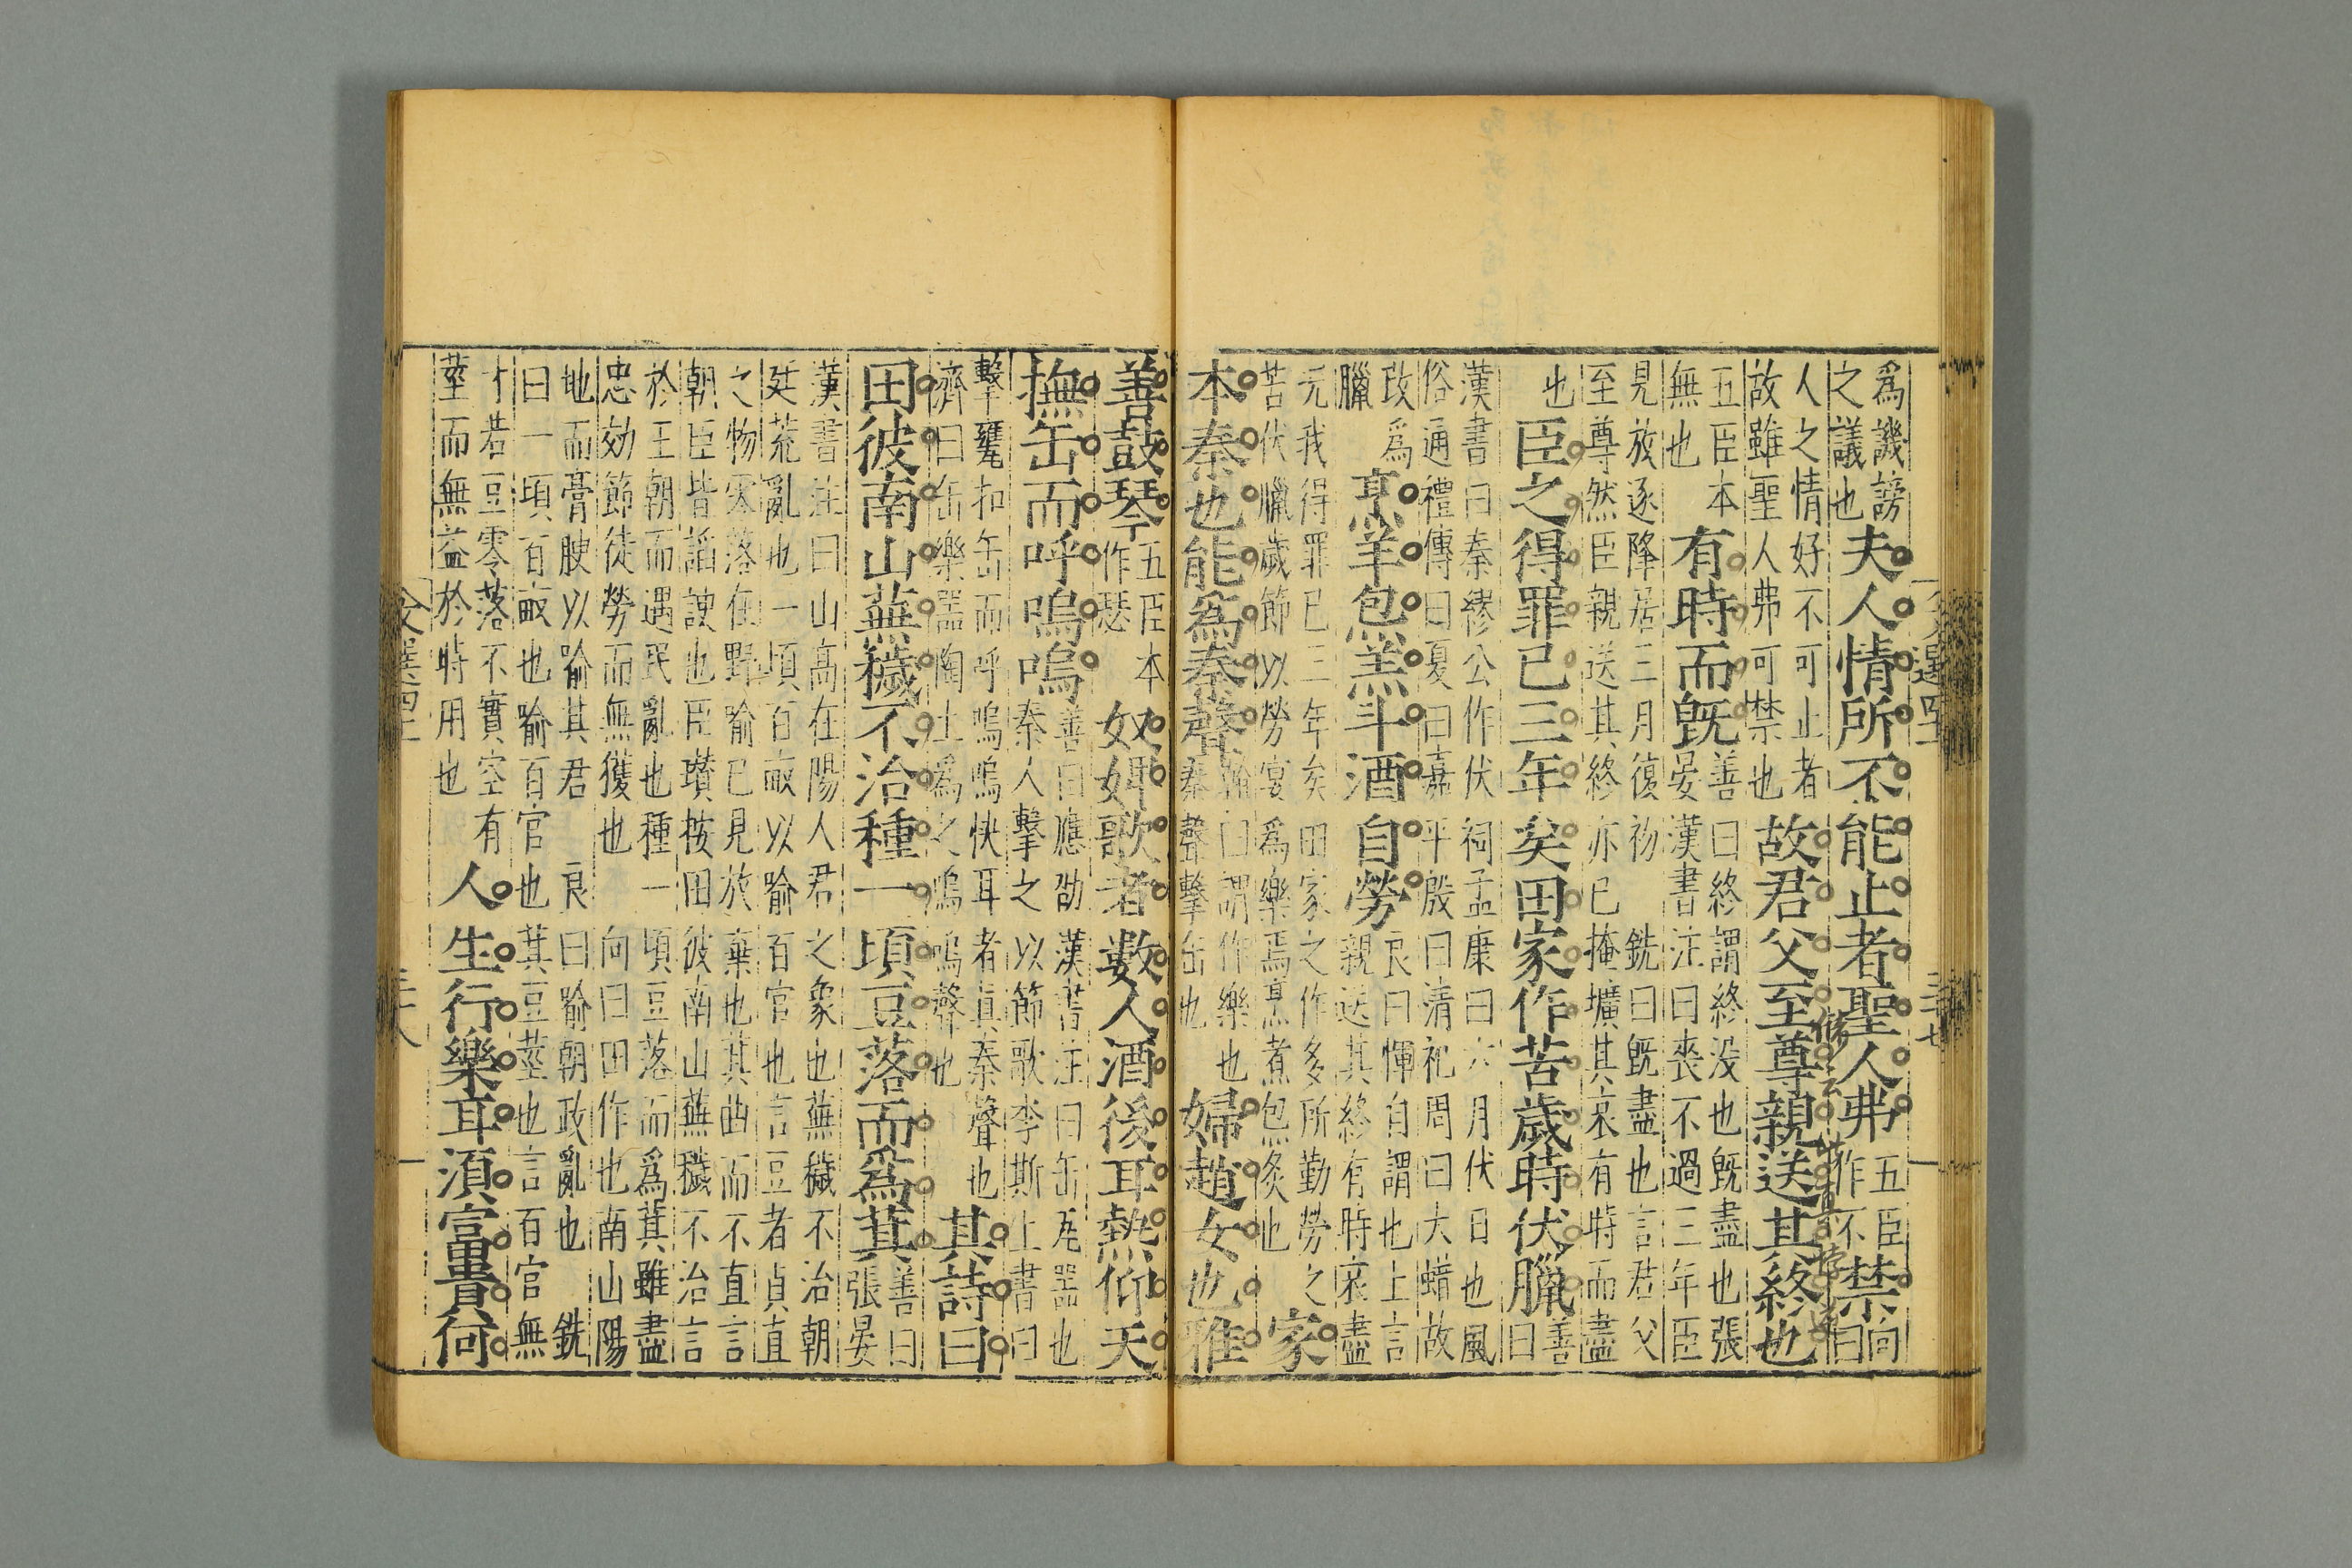 爲譏謗
之議也
夫人情所不能止者聖人弗
五臣
作不
禁
向
曰
人之情好不可止者
故雖聖人弗可禁也
故君父至尊親送其終也
五臣本
無也
有時而旣
善曰終謂終没也旣盡也張
晏漢書注曰喪不過三年臣
見放逐降居三月復初 銑曰旣盡也言君父
至尊然臣親送其終亦已掩壙其哀有時而盡
也
臣之得罪已三年矣田家作苦歲時伏臘
善
曰
漢書曰秦繆公作伏祠孟康曰六月伏日也風
俗通禮傳曰夏曰嘉平殷曰清祀周曰大蜡故
改爲
臘
烹羊炰羔斗酒自勞
良曰惲自謂也上言
親送其終有時哀盡
元我得罪已三年矣田家之作多所勤勞之
苦伏臘歲節以勞宴爲樂焉烹煮炰炙也
家
本秦也能爲秦聲
翰曰謂作樂也
秦聲擊缶也
婦趙女也雅
善鼓琴
五臣本
作瑟
奴婢歌者數人酒後耳熱仰天
撫缶而呼嗚嗚
善曰應劭漢書注曰缶瓦器也
秦人擊之以節歌李斯上書曰
擊甕扣缶而呼嗚嗚快耳者眞秦聲也
濟曰缶樂器陶土爲之嗚嗚聲也
其詩曰
田彼南山蕪穢不治種一頃豆落而爲萁
善曰
張晏
漢書注曰山高在陽人君之象也蕪穢不治朝
廷荒亂也一頃百畝以喻百官也言豆者貞直
之物零落在野喻已見放棄也萁曲而不直言
朝臣皆謟諛也臣瓚按田彼南山蕪穢不治言
於王朝而遇民亂也種一頃豆落而爲萁雖盡
忠効節徒勞而無獲也 向曰田作也南山陽
地而膏腴以喻其君 良曰喻朝政亂也 銑
曰一頃百畝也喻百官也萁豆莖也言百官無
才若豆零落不實空有
莖而無益於時用也
人生行樂耳須富貴何
文選四十一
三十八